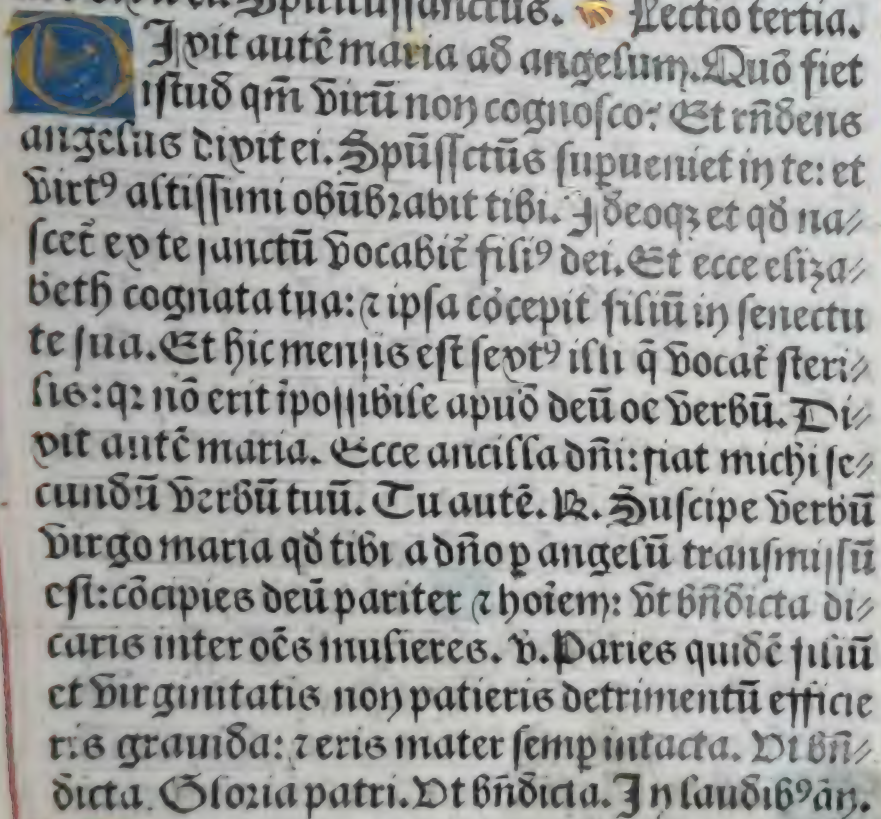 Spiritussanctus. Lectio tertia.
DIxit autē maria ad angelum. Quō fiet
istud qm̄ virū non cognosco: Et rn̄dens
angelus dixit ei. Spūssctūs supueniet in te: et
virtꝰ altissimi obūbrabit tibi. Ideoqꝫ et qd̄ na⸗
scet̄ ex te sanctū vocabit̄ filiꝰ dei. Et ecce eliza⸗
beth cognata tua: ⁊ ipsa cōcepit filiū in senectu
te sua. Et hic mensis est sextꝰ illi q̄ vocat̄ steri⸗
lis: qꝛ nō erit īpossibile apud deū oē verbū. Di⸗
xit autē maria. Ecce ancilla dn̄i: fiat michi se⸗
cundū verbū tuū. Tu autē. ℞. Suscipe verbū
virgo maria qd̄ tibi a dn̄o ꝑ angelū transmissū
est: cōcipies deū pariter ⁊ hoīem: vt bn̄dicta di⸗
caris inter oēs mulieres. v̄. Paries quidē filiū
et virginitatis non patieris detrimentū efficie
ris grauida: ⁊ eris mater semꝑ intacta. Vt bn̄⸗
dicta. Gloria patri. Vt bn̄dicta. In laudibꝰ ān.